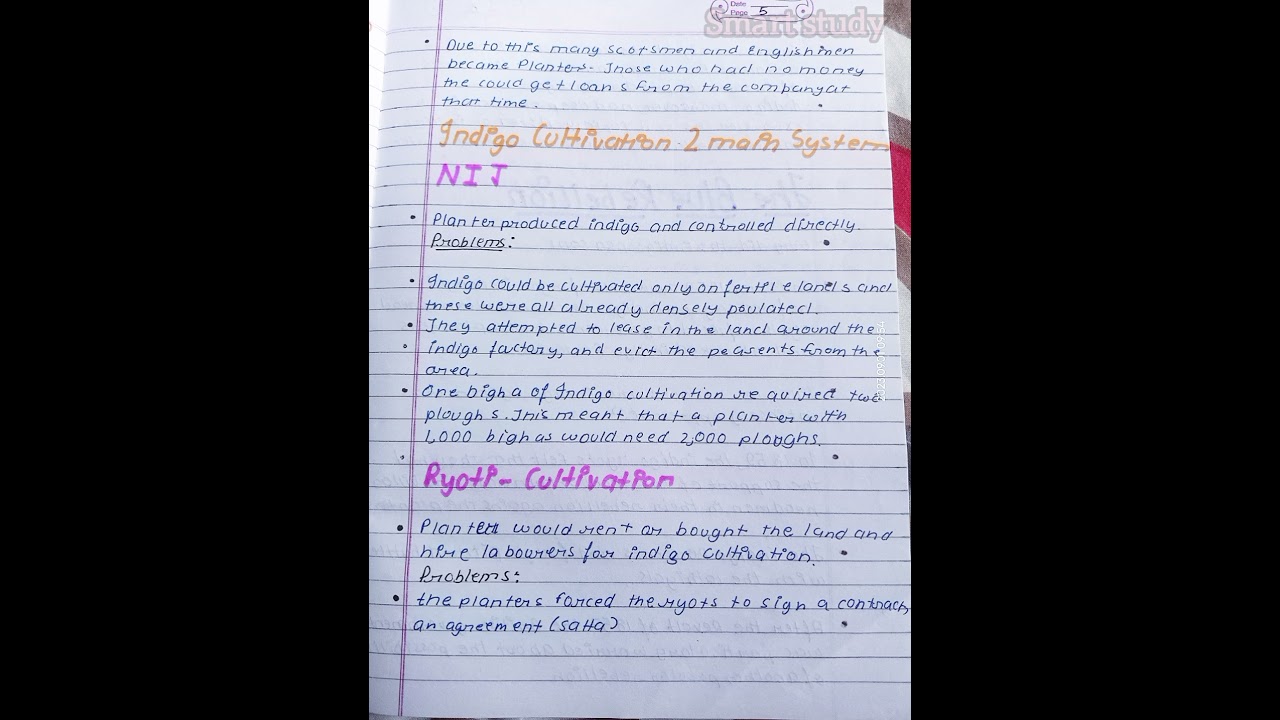 Date
Page 5
Smart study
Due to this many scotsmen and Englishmen
became Planters. Those who had no money
the could get loans from the company at
that time.
Indigo Cultivation 2 main System
NIJ
Planter produced indigo and controlled directly.
Problems:
Indigo could be cultivated only on fertile lands and
these were all already densely poulated.
They attempted to lease in the land around the
indigo factory, and evict the peasents from the
area.
One bigha of Indigo cultivation required two
ploughs. This meant that a planter with
1,000 bighas would need 2,000 ploughs.
Ryoti- Cultivation
Planter would rent or bought the land and
hire labourers for indigo cultivation.
Problems:
the planters forced the ryots to sign a contract,
an agreement (satta)